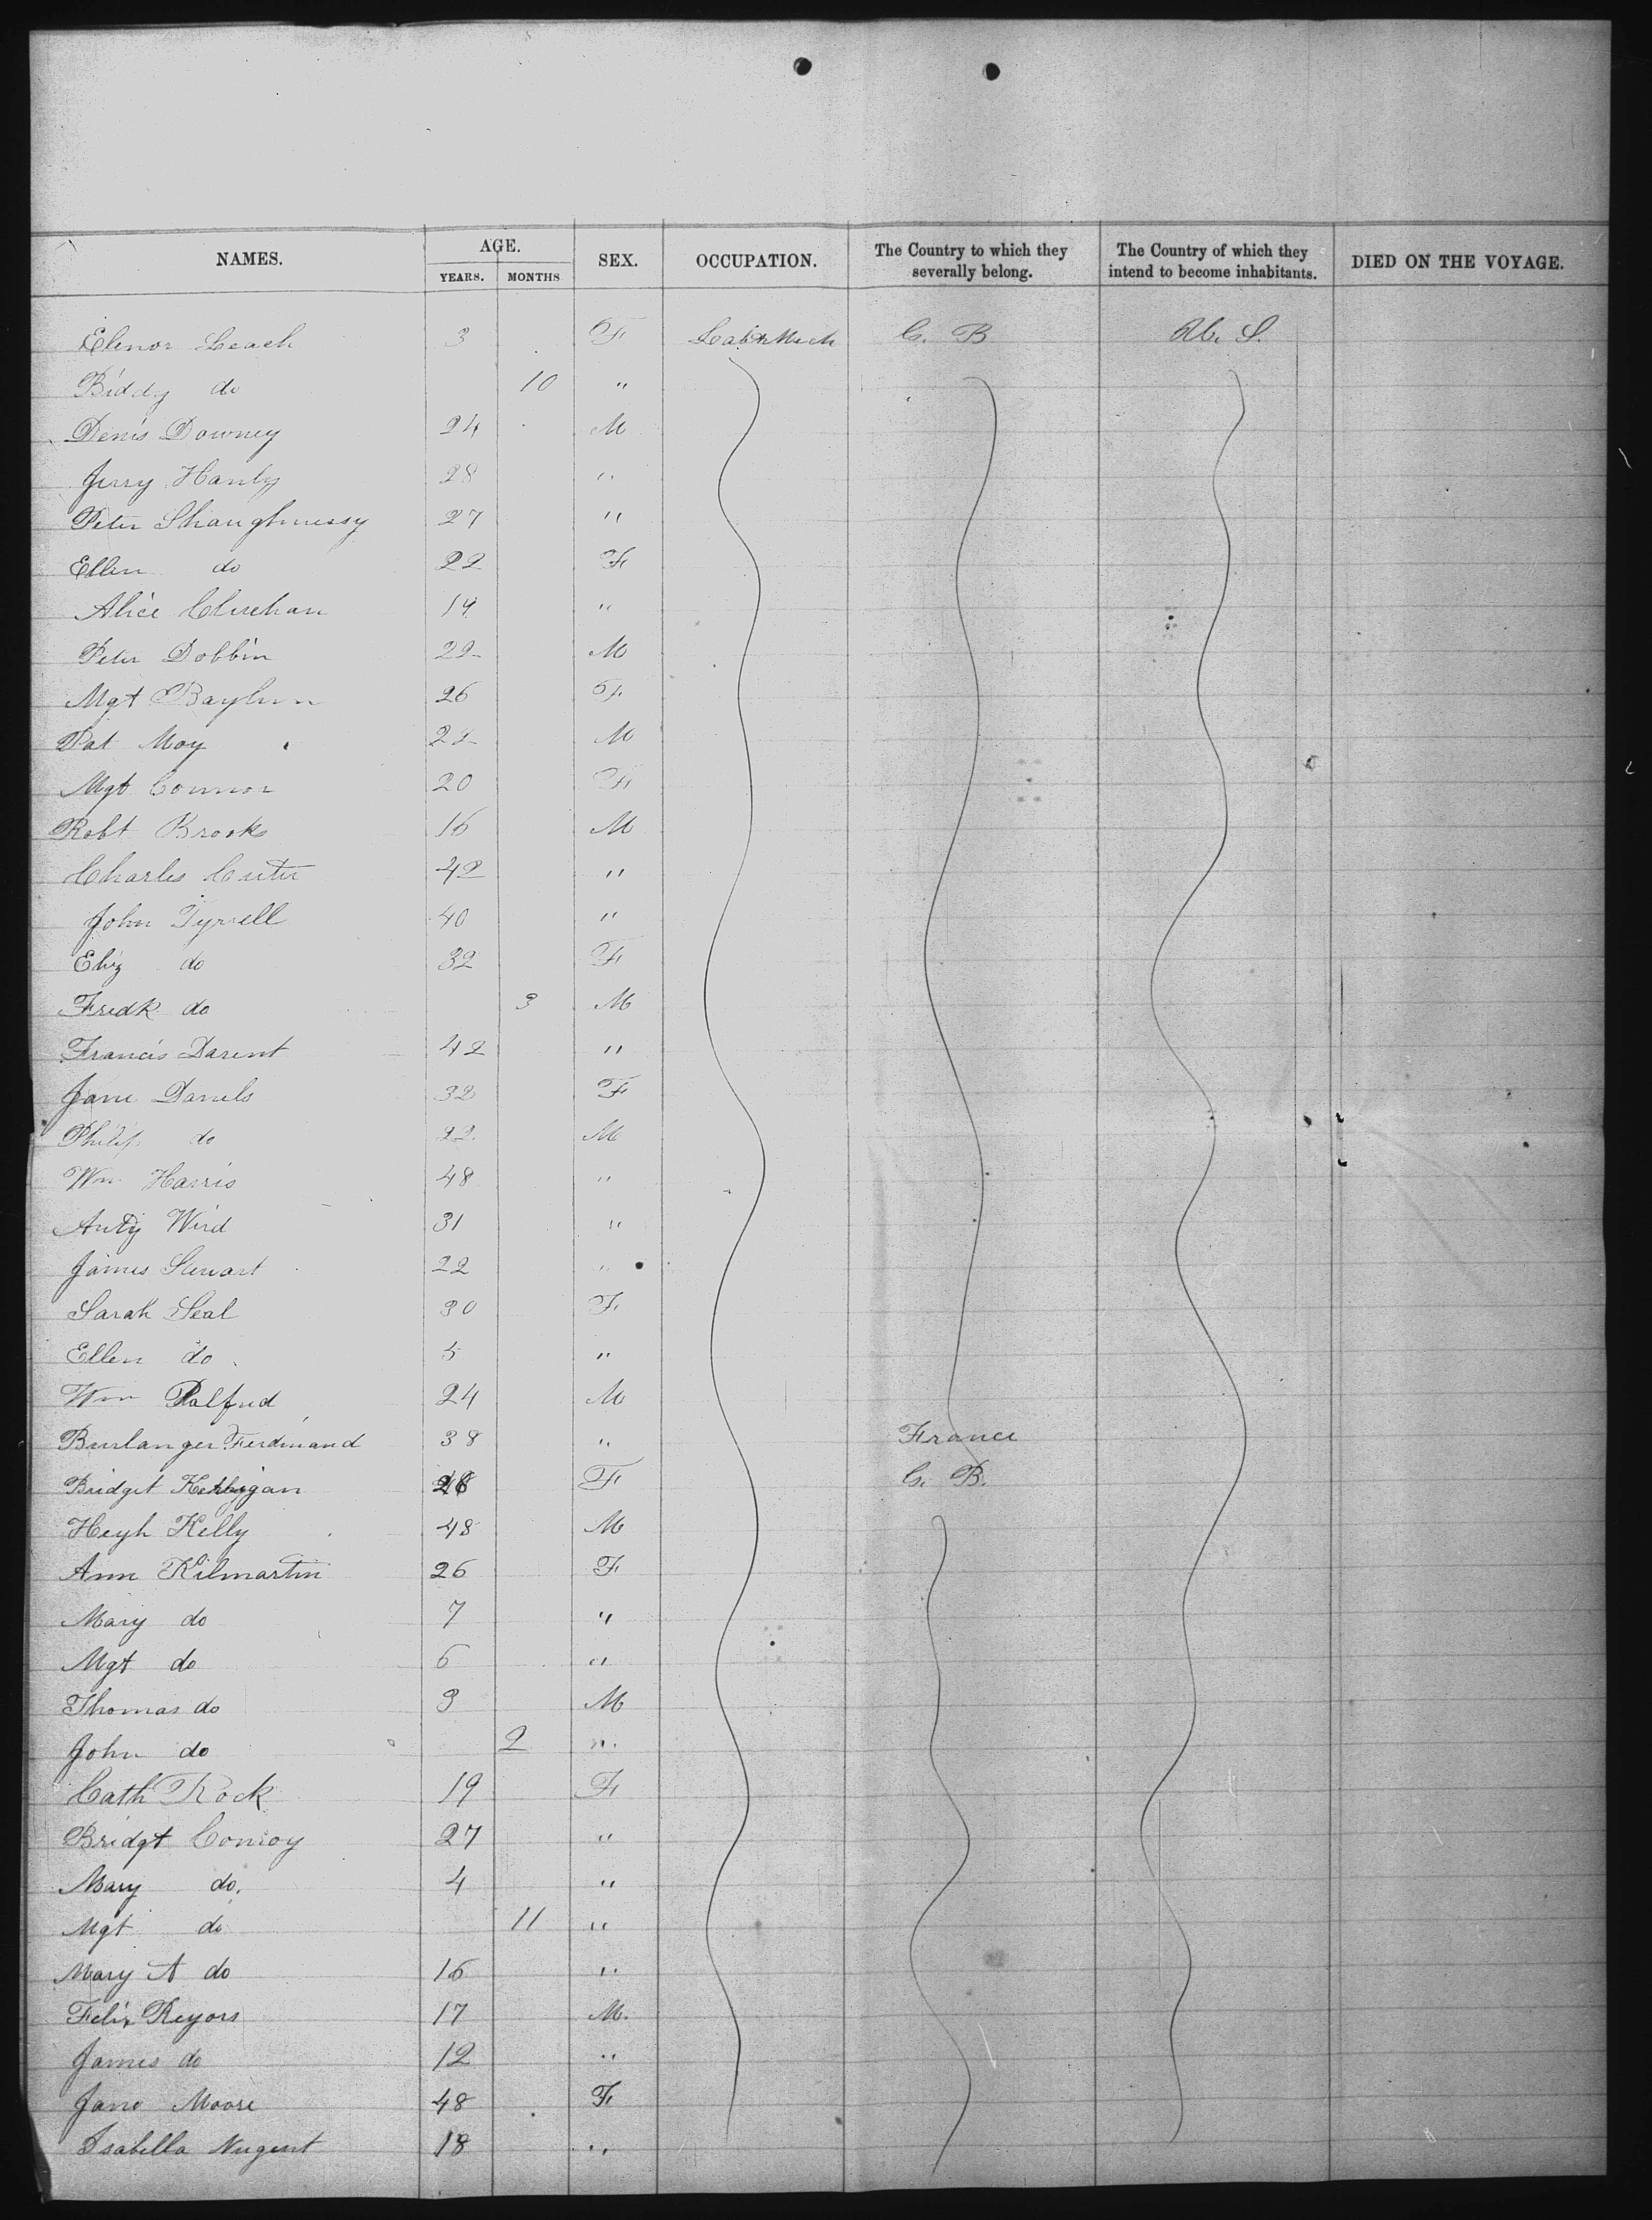 NAMES. AGE. SEX. OCCUPATION. The Country to which they severally belong. The Country of which they intend to become inhabitants. DIED ON THE VOYAGE.
YEARS. MONTHS
Elenor Leach 3 F Lab & Mech G. B U. S.
Biddy do 10 "
Denis Downey 24 M
Jerry Hanly 28 "
Peter Shaughnessy 27 "
Ellen do 22 F
Alice 19 "
Peter Dobbin 22 M
Mgt 26 F
Pat Moy 22 M
Mgt Connor 20 F
Robt Brooks 16 M
Charles 42 "
John Tyrrell 40 "
Eliz do 32 F
Fredk do 3 M
Francis Darent 42 "
Jane Daniels 32 F
Philip do 22 M
Wm Harris 48 "
Andy 31 "
James Stewart 22 "
Sarah Seal 30 F
Ellen do 5 "
Wm Palfred 24 M
Burlanger Ferdinand 38 " France
Bridget F G. B.
Hugh Kelly 48 M
Ann Kilmartin 26 F
Mary do 7 "
Mgt do 6 "
Thomas do 3 M
John do 2 "
Cath Rock 19 F
Bridgt Conroy 27 "
Mary do. 4 "
Mgt do 11 "
Mary A do 16 "
Felix Reyors 17 M.
James do 12 "
Jane Moore 48 F
Isabella Nugent 18 "